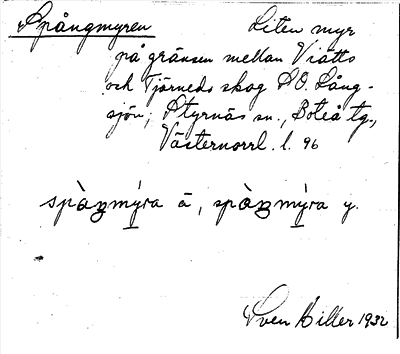 Spångmyren Liten myr
på gränsen mellan Viätts
och Tjärneds skog S.O. Lång-
sjön; Styrnäs sn., Boteå tg.,
Västernorrl. l. 96
spàŋmy̍ra ä, spàŋmy̍ra y.
Sven Hiller 1932